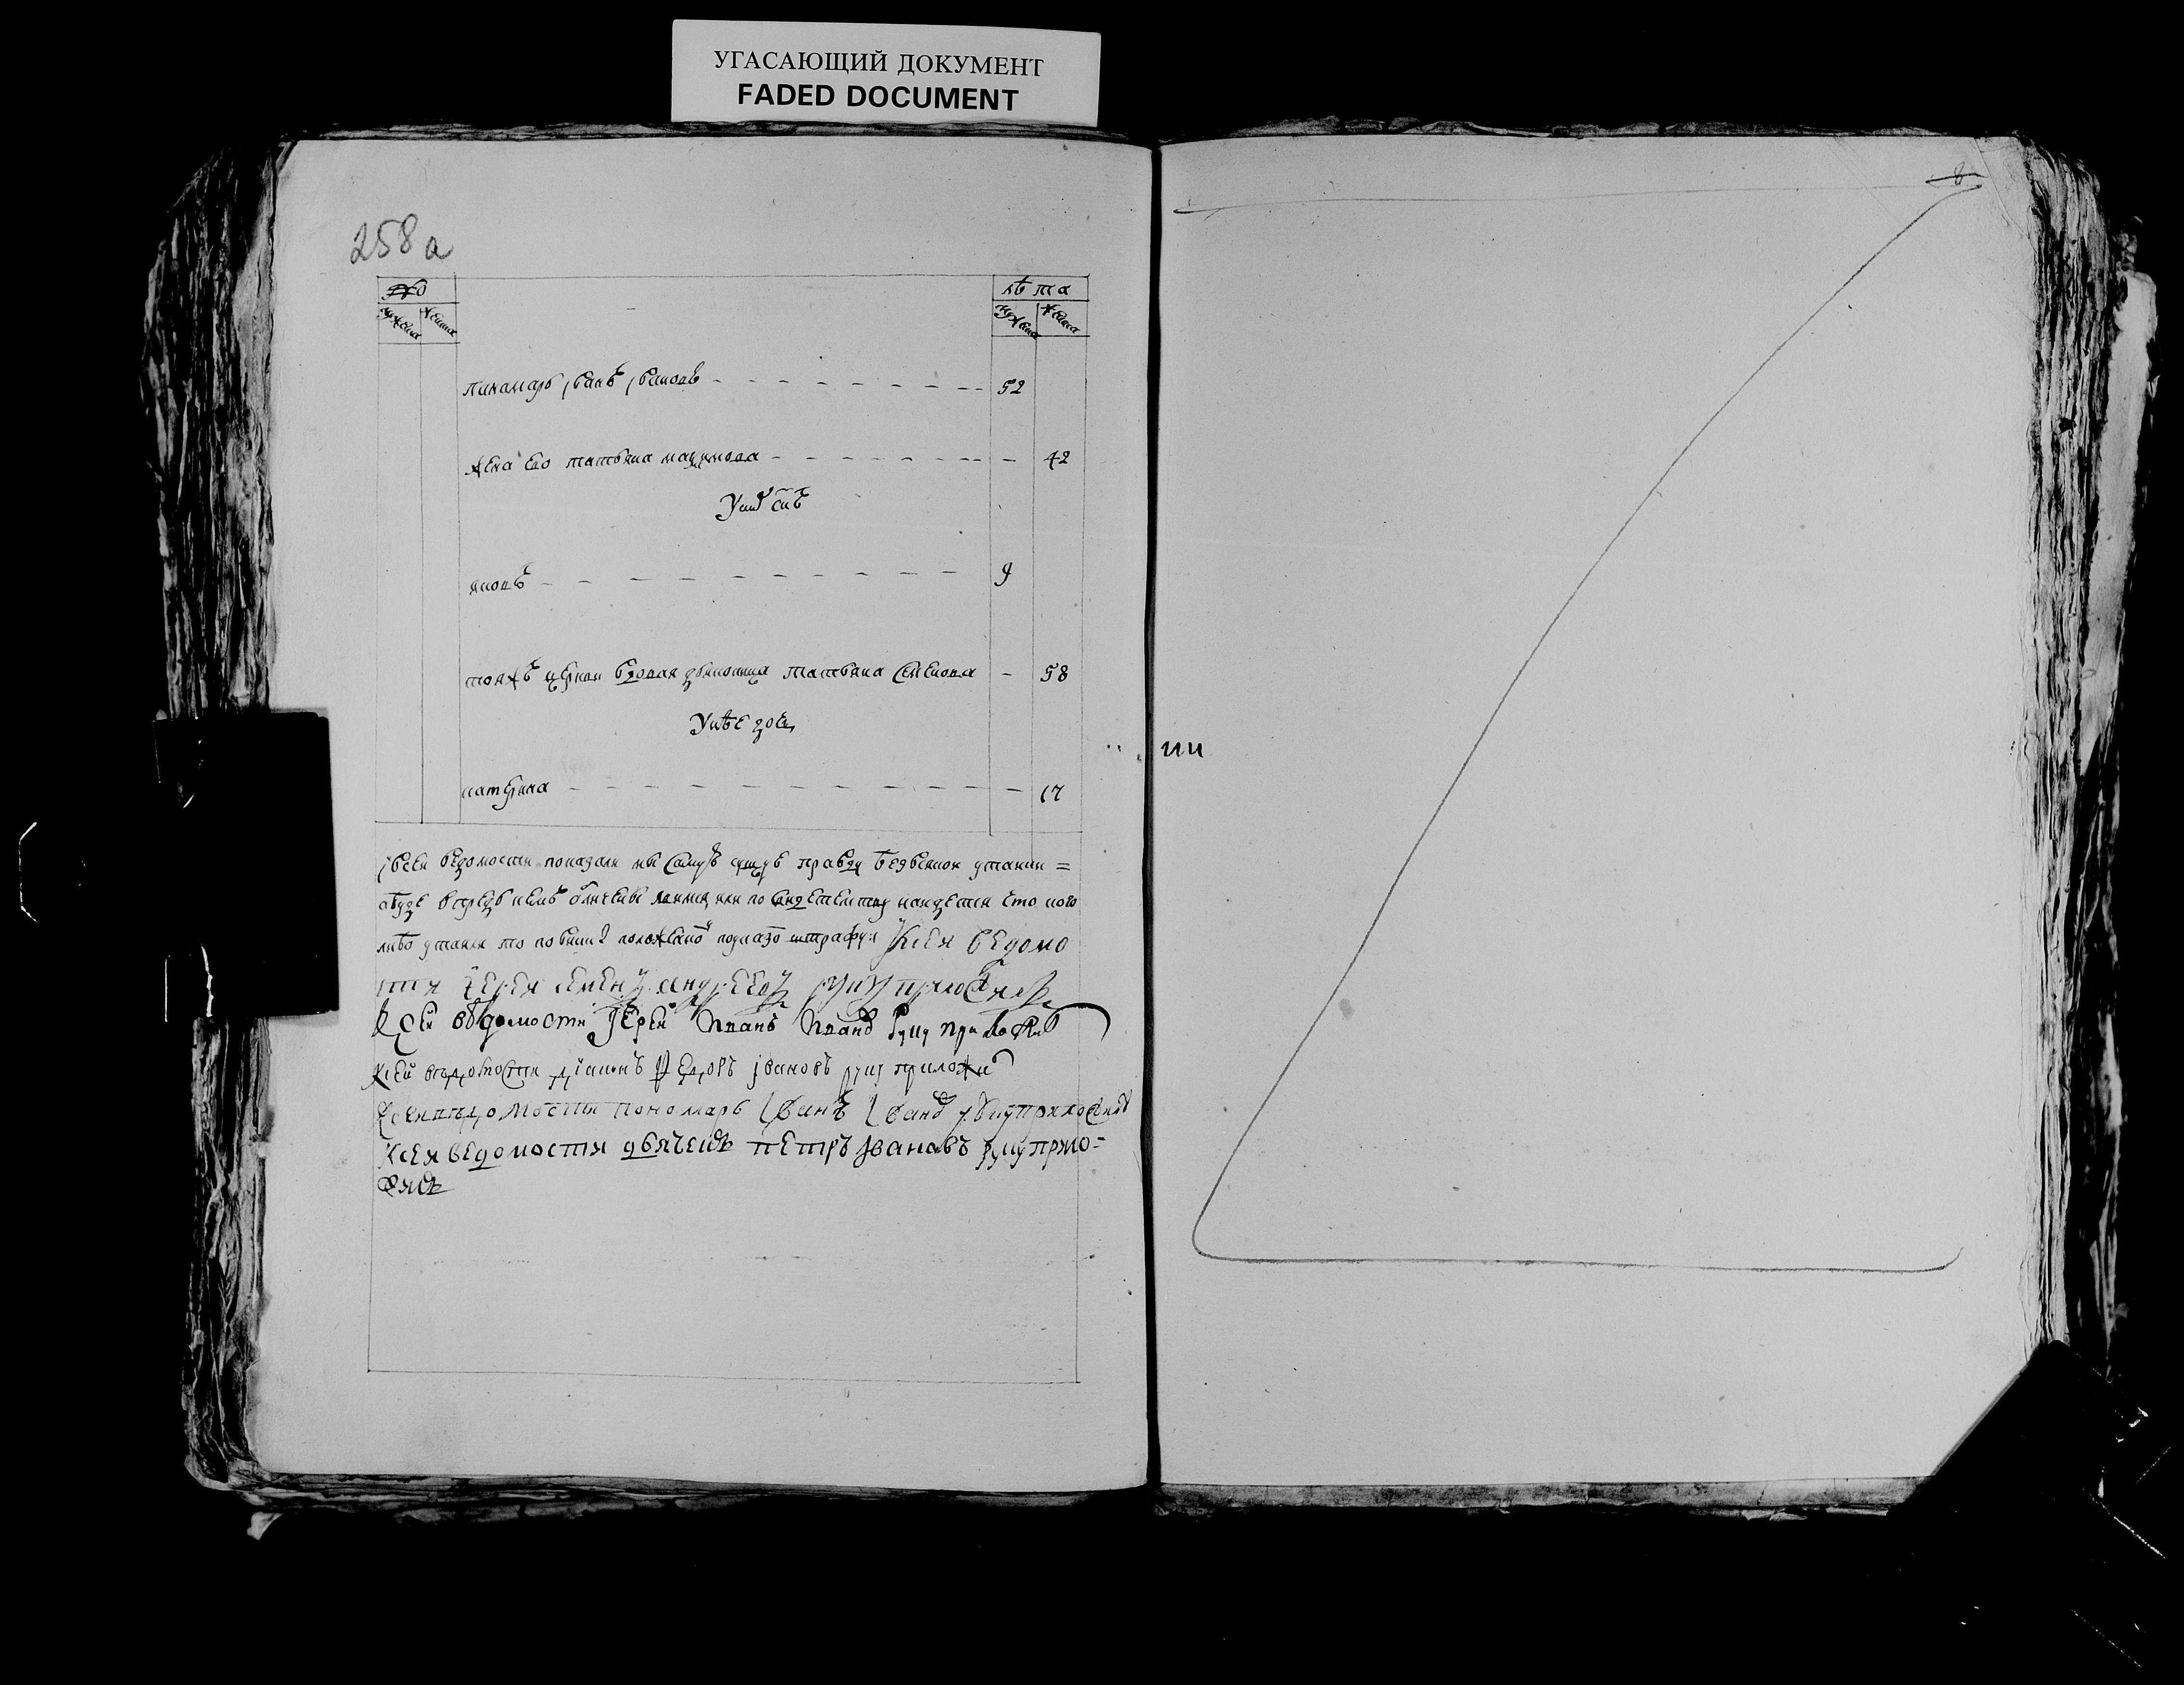 УГАСАЮЩИЙ ДОКУМЕНТ
FADED DOCUMENT
8
258 а
лѣта
мужска женска мужска женска
пономарь Іванъ Івановъ 52
жена ево татьяна 42
У них снъ
яковъ 9
тояж церкви вдовая татьяна семенова 58
У нѣе дочь
катерина 17
в сеи ведомости показали мы самую сущую правду безвсякои утаики
а буде впредь кемъ обличены или по наидется что кого
либо утаили то повинны положеного по указо штрафу К сеи ведомо
сти иереи семенъ андреевъ руку приложилъ
К сеи вѣдомости Иереи Иванъ Иванов руку приложил
К сеи вѣдомости диаконъ Федоръ івановъ руку приложил
К сеи ведомости пономарь Іванъ Іванов руку приложилъ
К сеи ведомости дьячекъ петръ івановъ руку прило=
жилъ